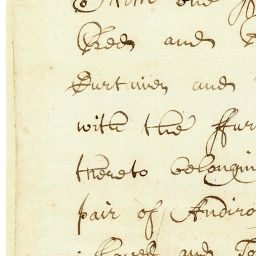 one
Bed and
Curtaines and
with the ffur
thereto belongin
pair of Andiro
and To